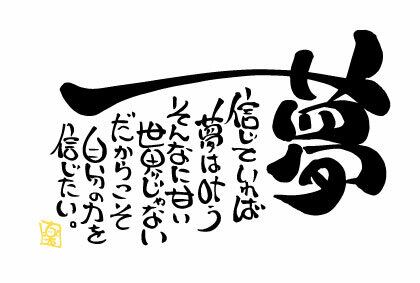 夢
信じていれば
夢は叶う
そんなに甘い
世界じゃない
だからこそ
自分の力を
信じたい。